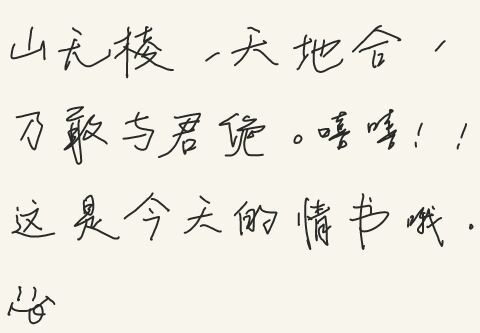 山无棱,天地合,
乃敢与君绝。嘻嘻!!
这是今天的情书哦.